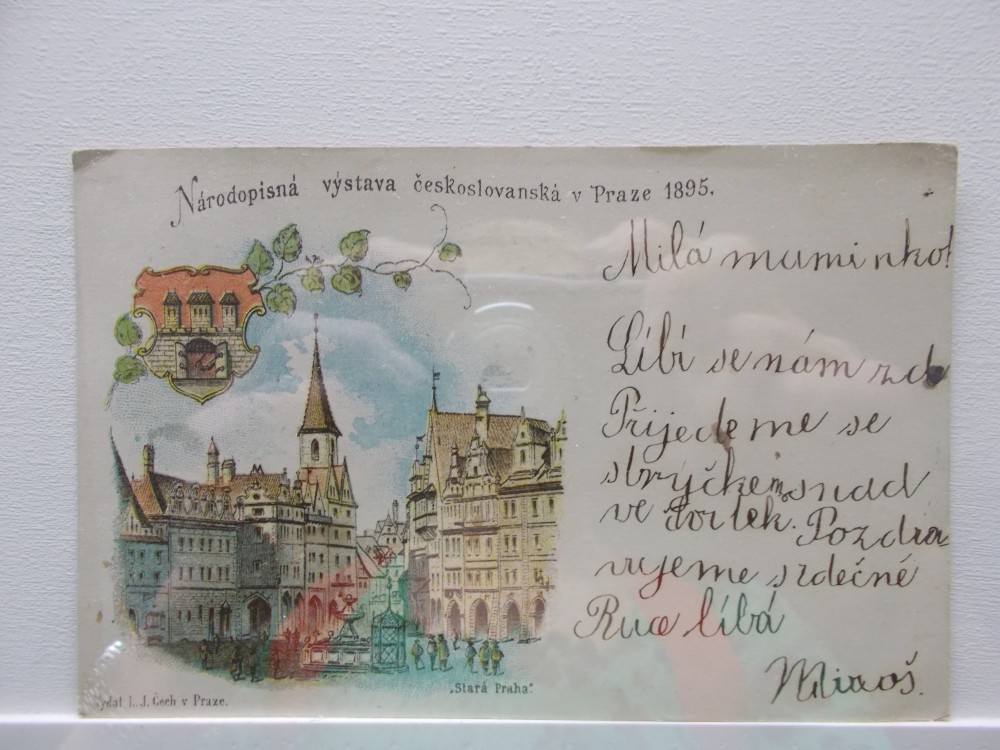 Národopisná výstava českoslovanská v Praze 1895.
Milá muminko!
Líbí se nám zde
Přijedeme se
strýčkem snad
ve čvrtek. Pozdra
vujeme srdečně
Ruce líbá
Miloš.
„Stará Praha“.
Vydal L. J. Čech v Praze.